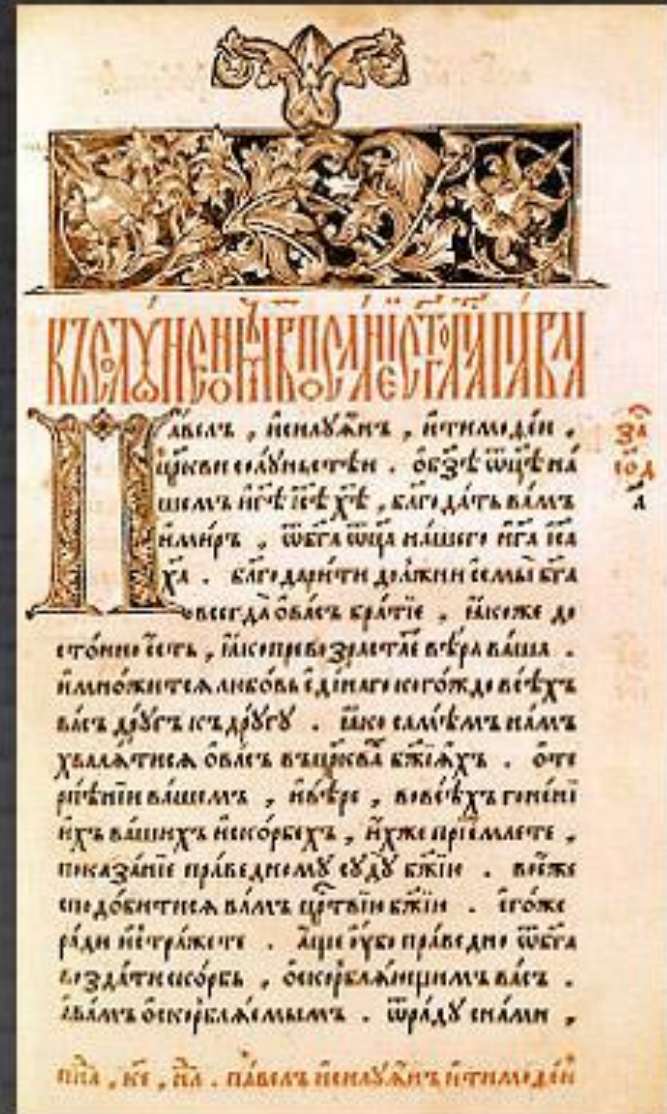 КЪСОЛꙋНѦНѠМЪ В҃ ПОСЛАНЇЕ СТ҃ГО АП҃ЛА ПА́ВЛА
Па́велъ , и҆силꙋѧ́нъ , и҆тимоѳе́и ,
цр҃кви солꙋ́ньстѣи . ѡ҆бз҃ѣ ѿц҃ѣ на́
шемъ и҆гд҃ѣ і҆с҃ѣ х҃ѣ , бл҃года́ть ва́мъ
и҆ми́ръ , ѿбг҃а ѿц҃а на́шего и҆гд҃а і҆с҃а
х҃а . бл҃годари́ти до́лжни є҆смы̀ бг҃а
всегда̀ ѡ҆ва́съ бра́тїе , ꙗ҆́коже до
сто́йно є҆́сть , ꙗ҆́ко превозраста́е вѣ́ра ва́ша .
и҆мно́житсѧ любо́вь є҆ди́наго кого́ждо всѣ́хъ
ва́съ дрꙋ́гъ къдрꙋ́гꙋ . ꙗ҆́ко самѣ́мъ на́мъ
хвали́тисѧ ѡ҆ва́съ въцр҃ква бж҃їѧхъ . ѡ҆те
рпѣ́нїи ва́шемъ , и҆вѣ́ре , вовсѣ́хъ гоне́нї
и҆хъ ва́шихъ и҆ско́рбехъ , и҆́хже прїе́млете ,
показа́нїе пра́ведномꙋ сꙋдꙋ̀ бж҃їю . во́еже
сподо́битисѧ ва́мъ цр҃твїю бж҃їю . є҆го́же
ра́ди и҆стра́жете . а҆́ще ᲂу҆́бо пра́ведно ѿбг҃а
возда́ти ско́рбь , ѡ҆скорблѧ́ющимъ ва́съ .
а҆ва́мъ ѡ҆скорблѧ́емымъ . ѿра́дꙋ сна́ми ,
за
сод
а
па́велъ и҆силꙋѧ́нъ и҆тимоѳе́й